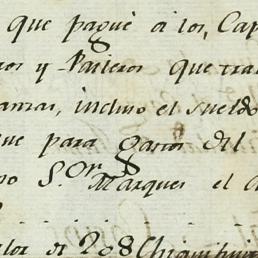 que pagué a los, Cap
os y Paileros que tra
amar, incluso el sueldo
ue para gastos del
no S.or Marques el
lor de 208 Chiquihui